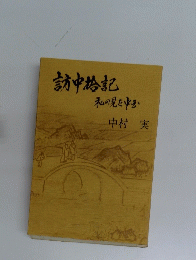 訪中拾記
私の見た中国
中村 実